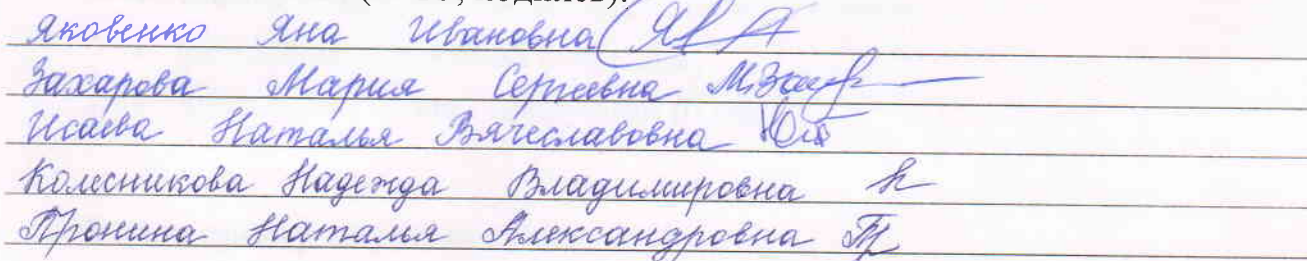 Яковенко Яна Ивановна
Захарова Мария Сергеевна М.Захар
Исаева Наталья Вячеславовна
Колесникова Надежда Владимировна
Пронина Наталья Александровна